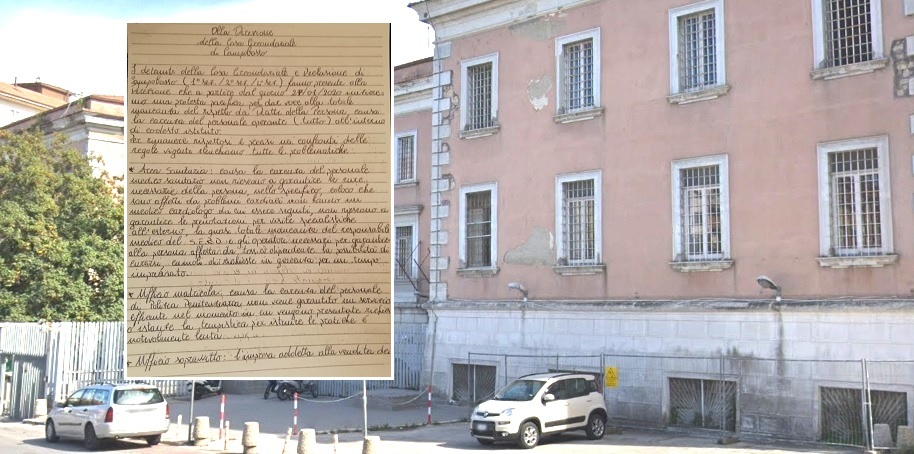 Alla Direzione
della Casa Circondariale
di Campobasso
I detenuti della Casa Circondariale e Reclusione di
Campobasso (1ª sez. / 2ª sez. / 4ª sez.) fanno presente alla
direzione che a partire dal giorno 27/01/2020
una protesta pacifica per dar voce alla totale
mancanza del rispetto dei diritti della Persona, causa
la carenza del personale operante (tutto) all'interno
di codesto istituto.
Per rimanere rispettosi e precisi nei confronti delle
regole vigenti elenchiamo tutte le problematiche:
* Area Sanitaria: causa la carenza del personale
medico sanitario non riescono a garantire le cure
necessarie della persona, nello specifico, coloro che
sono affetti da problemi cardiaci non hanno un
medico cardiologo da cui essere seguiti, non riescono a
garantire le prenotazioni per visite specialistiche
all'esterno, la quasi totale mancanza del responsabile
medico del S.E.R.D. e gli operatori necessari per garantire
alla persona affetta da tossico dipendenze la possibilità di
curarsi, causa richieste in giacenza per un tempo
imprecisato.
* Ufficio matricola: causa la carenza del personale
di Polizia Penitenziaria non viene garantito un servizio
efficiente nel momento in cui vengono presentate richieste
o istanze la tempistica per istruire le pratiche è
notevolmente lenta.
* Ufficio sopravvitto: l'impresa addetta alla vendita dei